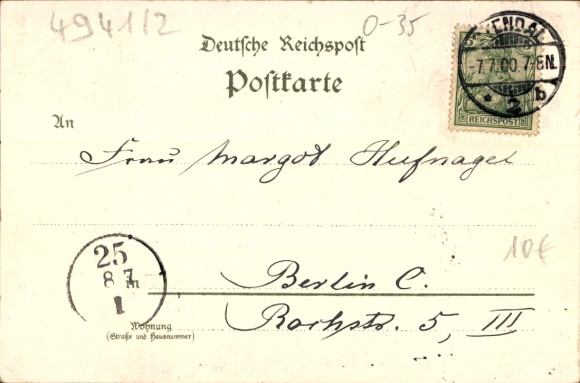 49 41/2
0-35
Deutsche Reichspost
Postkarte
STENDAL
-7.7.00.7-8N.
* 2 b
REICHSPOST
An
Frau Margot Hufnagel
10€
25
8 7
1
m
Berlin C.
Rochstr. 5, III
Wohnung
(Straße und Hausnummer)